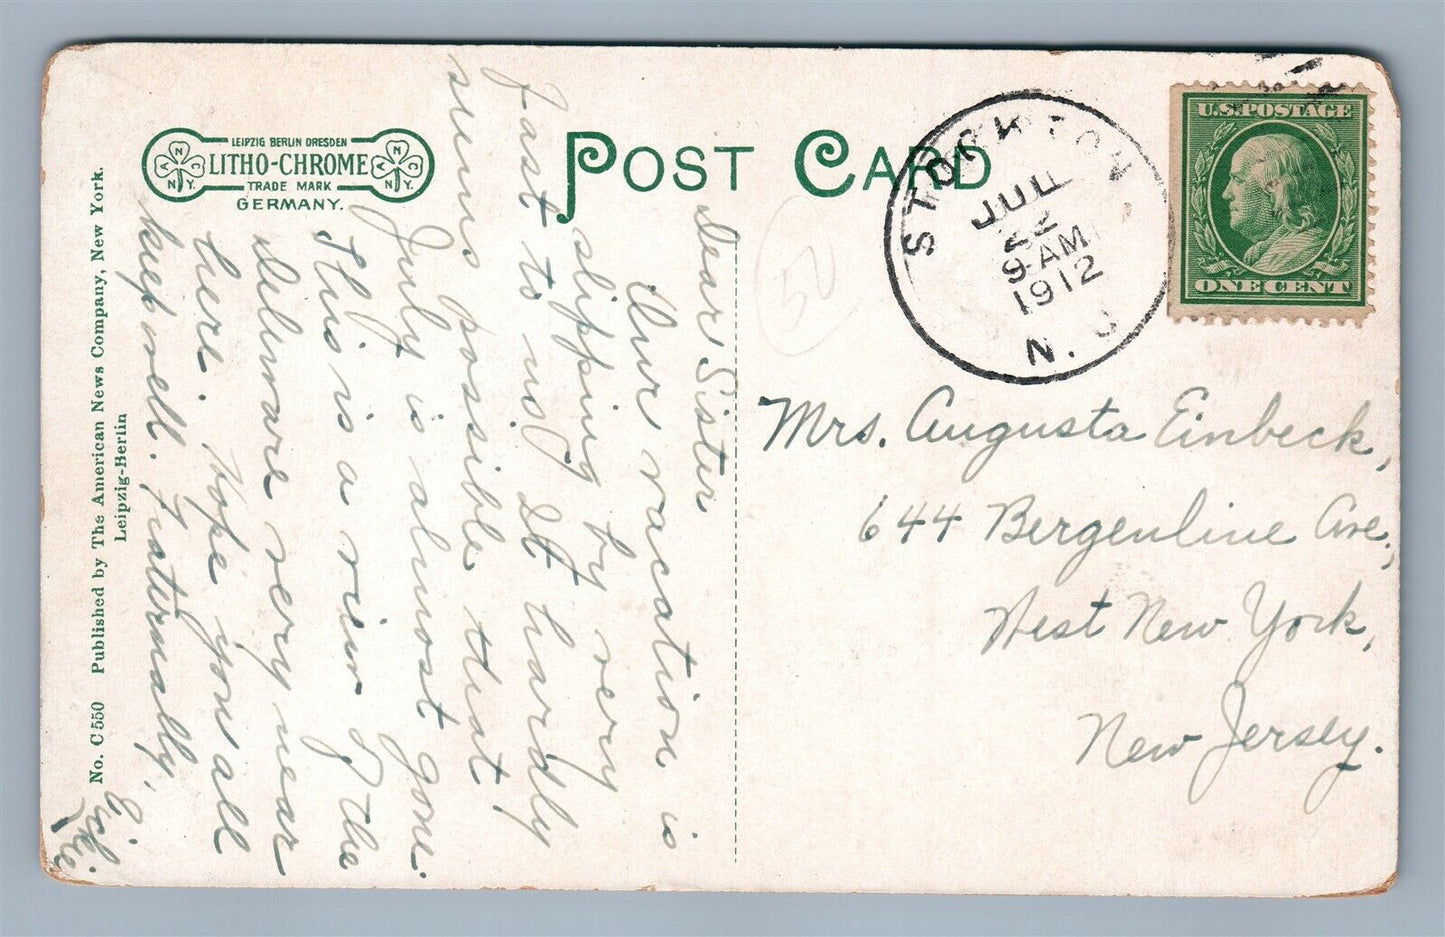 LEIPZIG BERLIN DRESDEN
LITHO-CHROME
TRADE MARK
GERMANY.
A N C N.Y.
A N C N.Y.
POST CARD
STOCKTON
JUL
22
9-AM
1912
N.J.
U.S. POSTAGE
ONE CENT
No. C 550 Published by The American News Company, New York.
Leipzig-Berlin
Dear Sister
Our vacation is
slipping by very
fast to us. It hardly
seems possible that
July is almost gone.
This is a view of the
Delaware very near
here. Hope you all
keep well. Fraternally,
52
Mrs. Augusta Einbeck,
644 Bergenline Ave.,
West New York,
New Jersey.